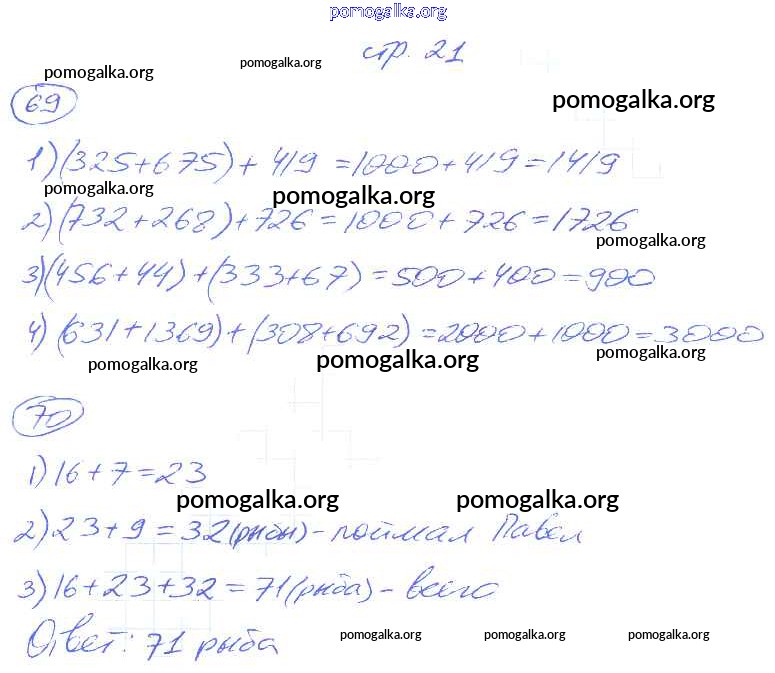 pomogalka.org
стр. 21
pomogalka.org
pomogalka.org
pomogalka.org
69
1) (325+675)+419=1000+419=1419
pomogalka.org
pomogalka.org
2) (732+268)+726=1000+726=1726
pomogalka.org
3) (456+44)+(333+67)=500+400=900
4) (631+1369)+(308+692)=2000+1000=3000
pomogalka.org
pomogalka.org
pomogalka.org
70
1) 16+7=23
pomogalka.org
pomogalka.org
2) 23+9=32 (рыбы) - поймал Павел
3) 16+23+32=71 (рыба) - всего
Ответ: 71 рыба
pomogalka.org
pomogalka.org
pomogalka.org